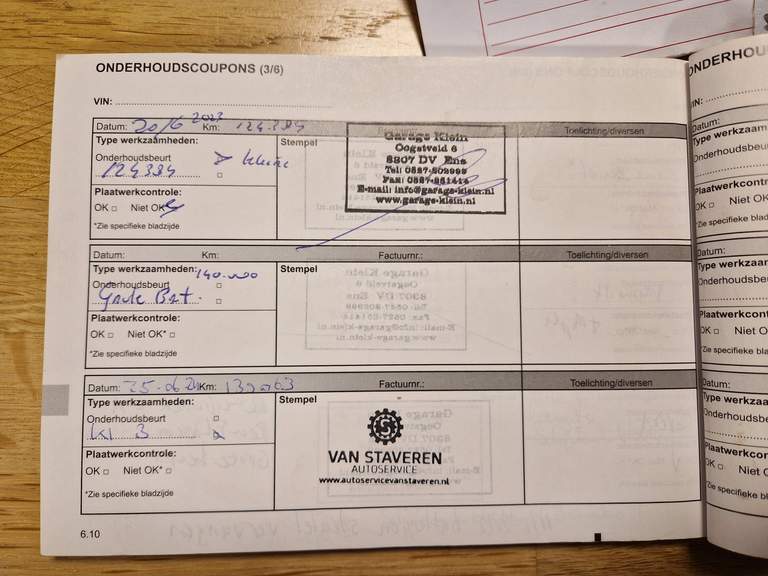 ONDERHOUDSCOUPONS (3/6)
VIN:
Datum: 20/6 2023 Km: 124.384 Factuurnr.: Toelichting/diversen
Type werkzaamheden:
Onderhoudsbeurt kleine
124384
Plaatwerkcontrole:
OK □ Niet OK
*Zie specifieke bladzijde
Stempel
Garage Klein
Oogstveld 6
8307 DV Ens
Tel: 0527-202999
Fax: 0527-251414
E-mail: info@garage-klein.nl
www.garage-klein.nl
Datum: Km: Factuurnr.: Toelichting/diversen
Type werkzaamheden: 140.000
Onderhoudsbeurt □
Grote Brt.
Plaatwerkcontrole:
OK □ Niet OK* □
*Zie specifieke bladzijde
Stempel
Datum: 25-06 24 Km: 139063 Factuurnr.: Toelichting/diversen
Type werkzaamheden:
Onderhoudsbeurt □
kl 3
Plaatwerkcontrole:
OK □ Niet OK* □
*Zie specifieke bladzijde
Stempel
VAN STAVEREN
AUTOSERVICE
www.autoservicevanstaveren.nl
6.10
ONDERHOU
VIN:
Datum:
Type werkzaam
Onderhoudsbeu
Plaatwerkcontro
OK □ Niet O
*Zie specifieke bl
Datum:
Type werkzaam
Onderhoudsbe
Plaatwerkcontro
OK □ Niet O
*Zie specifieke bl
Datum:
Type werkzaa
Onderhoudsbe
Plaatwerkcor
OK □ Niet
*Zie specifieke